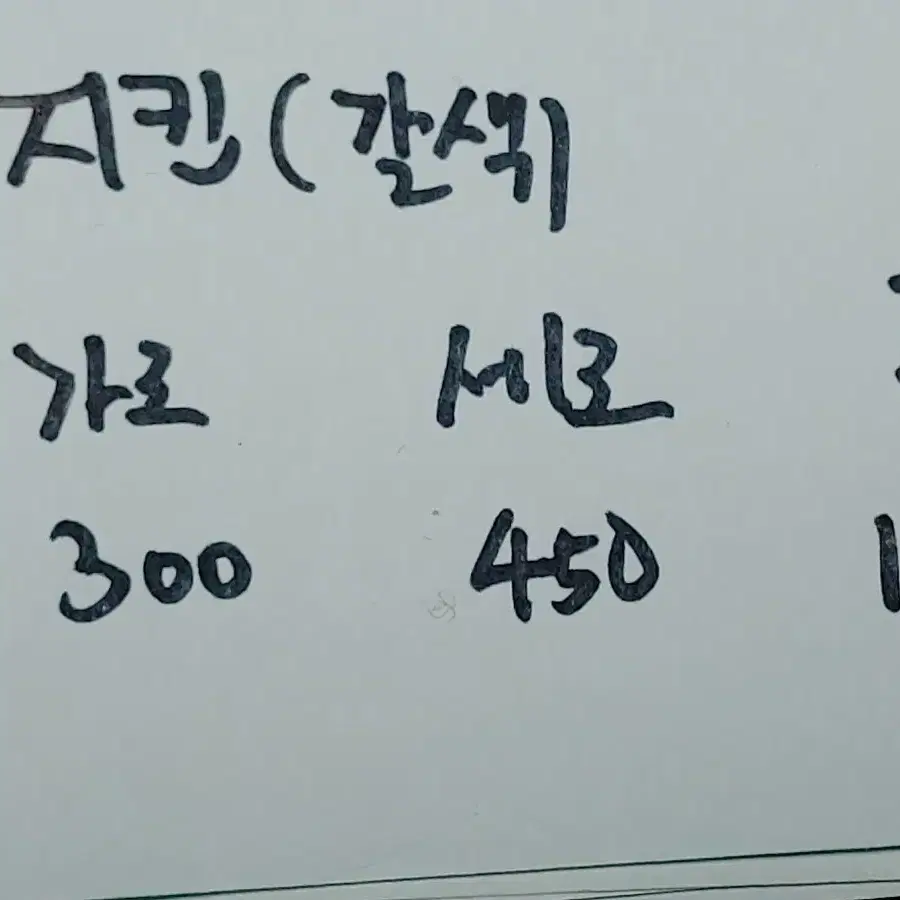 지킨(갈색)
가로 세로
300 450